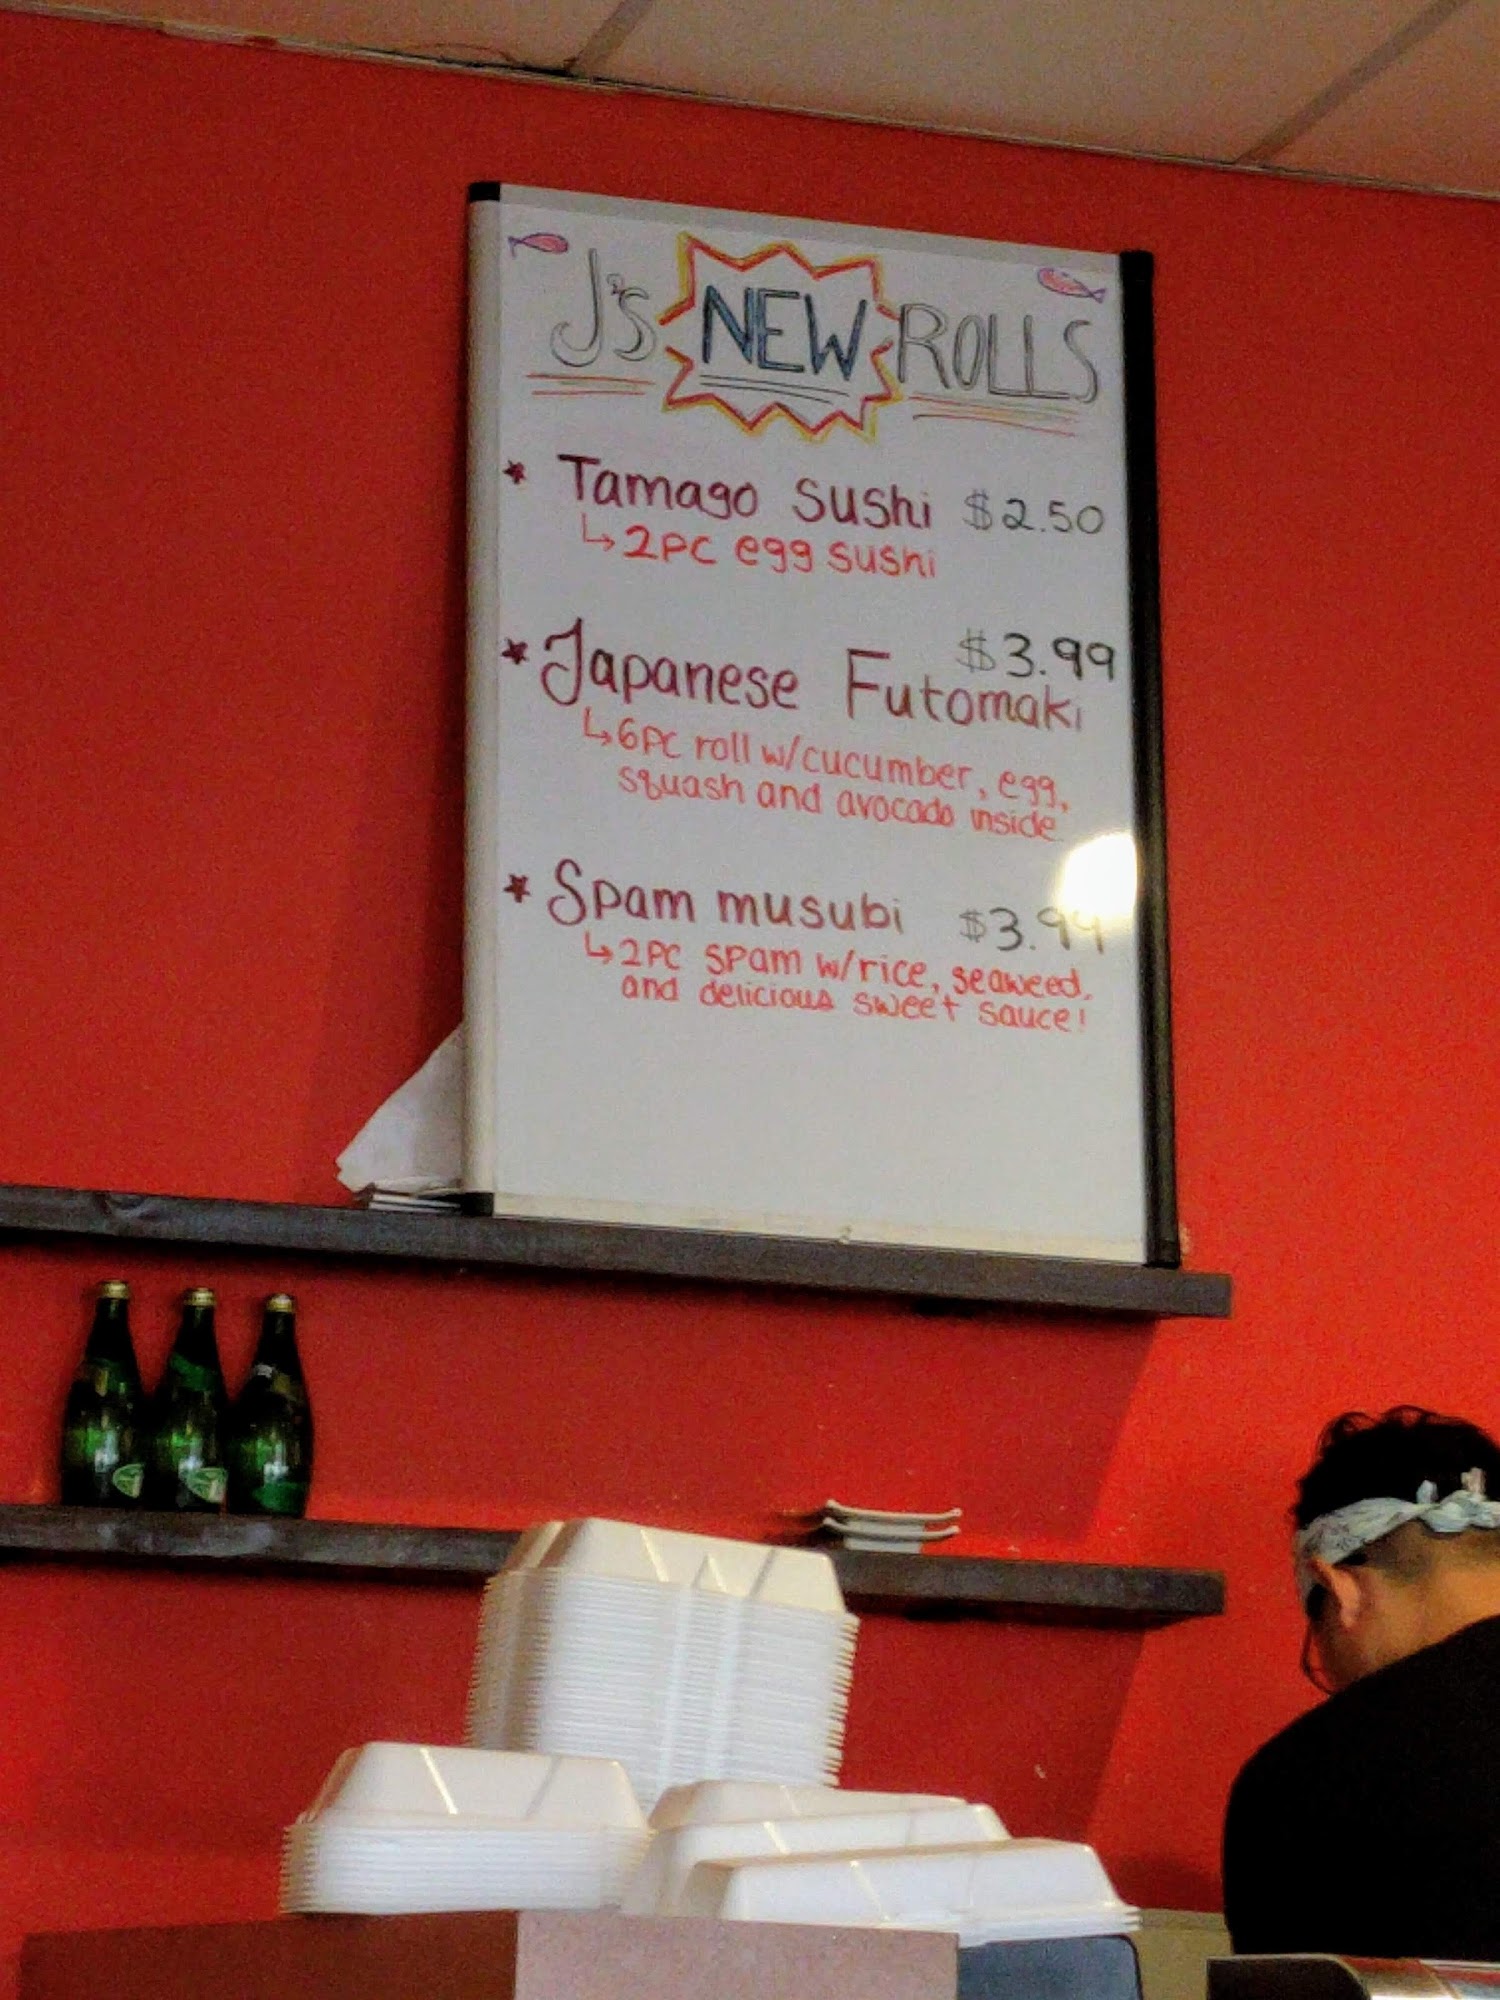 J's NEW ROLLS
* Tamago Sushi $2.50
↳ 2pc egg sushi
$3.99
* Japanese Futomaki
↳ 6pc roll w/cucumber, egg,
squash and avocado inside
* Spam musubi $3.99
↳ 2pc spam w/rice, seaweed,
and delicious sweet sauce!